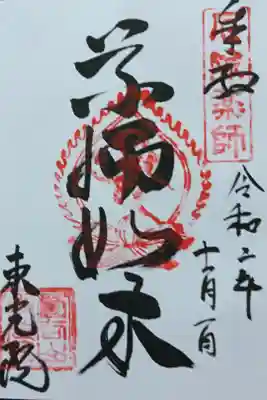 奉拝
薬師
令和二年
十一月一日
薬師如来
東光院